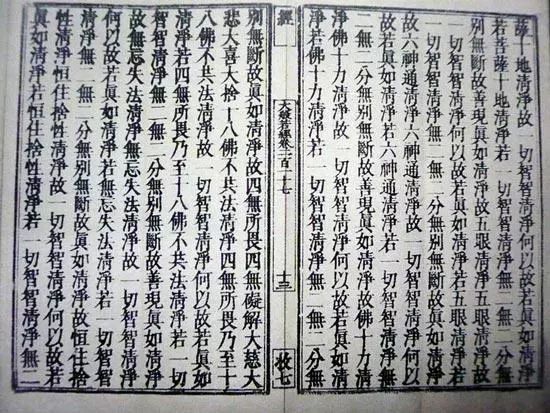 薩十地清淨故一切智智清淨何以故若眞如清淨
若菩薩十地清淨若一切智智清淨無二無二分無
別無斷故善現眞如清淨故五眼清淨五眼清淨故
一切智智清淨何以故若眞如清淨若五眼清淨若
一切智智清淨無二無二分無別無斷故眞如清淨
故六神通清淨六神通清淨故一切智智清淨何以
故若眞如清淨若六神通清淨若一切智智清淨無
二無二分無別無斷故善現眞如清淨故佛十力清
淨佛十力清淨故一切智智清淨何以故若眞如清
淨若佛十力清淨若一切智智清淨無二無二分無
經
大般若經卷二百二十七
十三
枚七
別無斷故眞如清淨故四無所畏四無礙解大慈大
悲大喜大捨十八佛不共法清淨四無所畏乃至十
八佛不共法清淨故一切智智清淨何以故若眞如
清淨若四無所畏乃至十八佛不共法清淨若一切
智智清淨無二無二分無別無斷故善現眞如清淨
故無忘失法清淨無忘失法清淨故一切智智清淨
何以故若眞如清淨若無忘失法清淨若一切智智
清淨無二無二分無別無斷故眞如清淨故恒住捨
性清淨恒住捨性清淨故一切智智清淨何以故若
眞如清淨若恒住捨性清淨若一切智智清淨無二